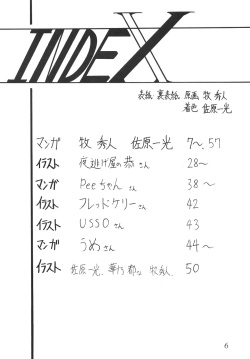 INDEX
表紙 裏表紙 原画 牧 秀人
着色 佐原一光
マンガ 牧 秀人 佐原一光 7〜57
イラスト 夜逃げ屋の恭さん 28〜
マンガ Peeちゃんさん 38〜
イラスト フレッドケリーさん 42
イラスト USSOさん 43
マンガ うめさん 44〜
イラスト 佐原一光、華乃 郡 牧秀人、50
6